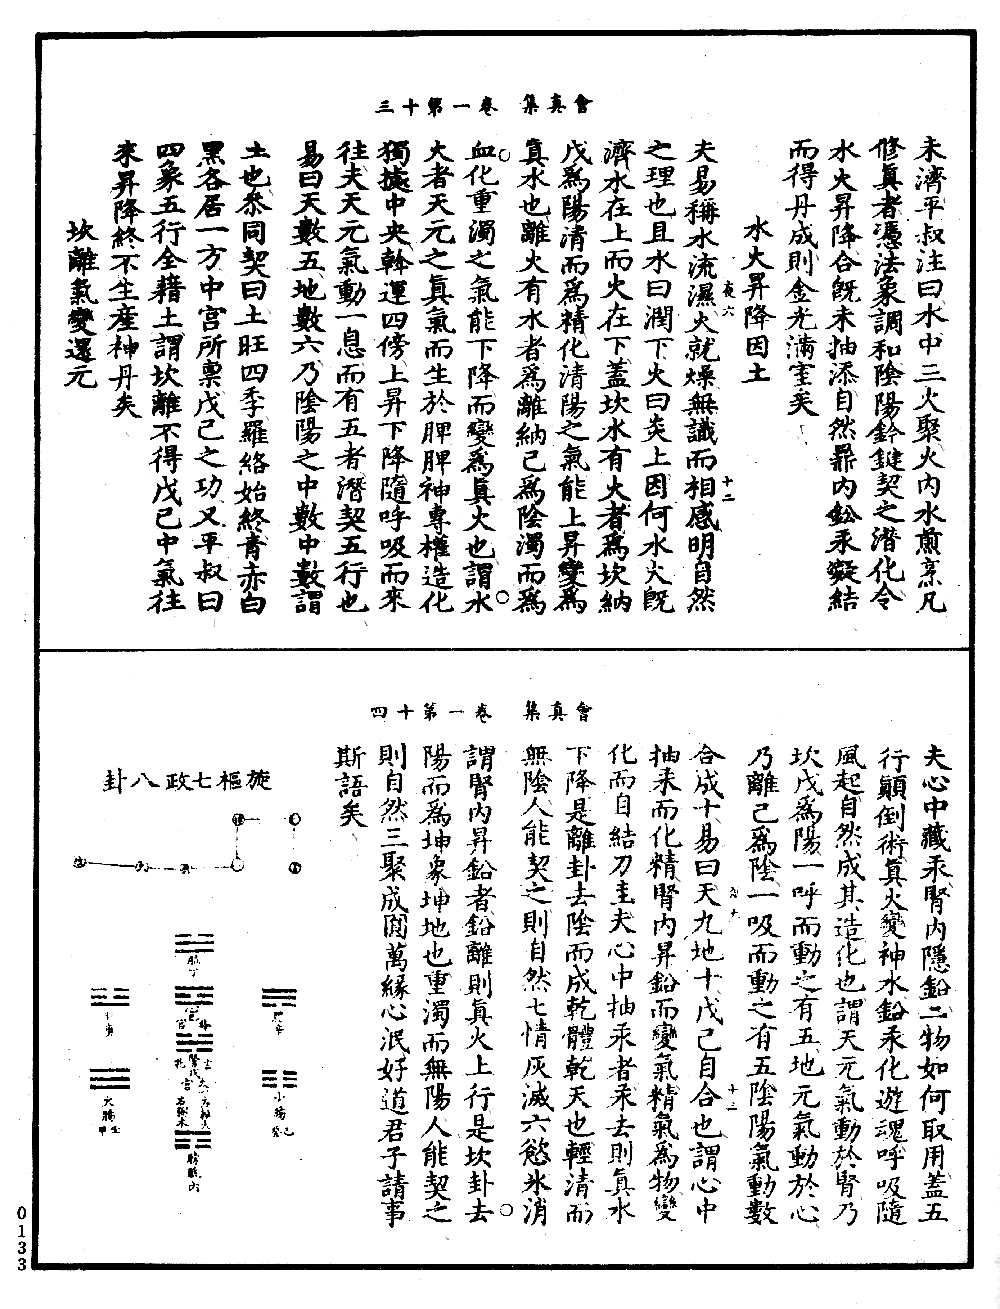 三十第一卷　集真會
未濟平叔注曰水中三火聚火內水煎烹凡
修真者憑法象調和陰陽鈐鍵契之潛化令
水火昇降合既未抽添自然鼎內鈆汞凝結
而得丹成則金光滿室矣
水火昇降因土
夫易稱水流濕火就燥無識而相感明自然
之理也且水曰潤下火曰炎上因何水火既
濟水在上而火在下蓋坎水有火者為坎納
戊為陽清而為精化清陽之氣能上昇變為
真水也離火有水者為離納己為陰濁而為
血化重濁之氣能下降而變為真火也謂水
火者天元之真氣而生於脾脾神專權造化
獨據中央斡運四傍上昇下降隨呼吸而來
往夫天元氣動一息而有五者潛契五行也
易曰天數五地數六乃陰陽之中數中數謂
土也叅同契曰土旺四季羅絡始終青赤白
黑各居一方中宮所稟戊己之功又平叔曰
四象五行全藉土謂坎離不得戊己中氣往
來昇降終不生產神丹矣
坎離氣變還元
夜六
十二
四十第一卷　集真會
夫心中藏汞腎內隱鈆二物如何取用蓋五
行顛倒術真火變神水鈆汞化遊魂呼吸隨
風起自然成其造化也謂天元氣動於腎乃
坎戊為陽一呼而動之有五地元氣動於心
乃離己為陰一吸而動之有五陰陽氣動數
合成十易曰天九地十戊己自合也謂心中
抽汞而化精腎內昇鈆而變氣精氣為物變
化而自結刀圭夫心中抽汞者汞去則真水
下降是離卦去陰而成乾體乾天也輕清而
無陰人能契之則自然七情灰滅六慾氷消
謂腎內昇鈆者鈆離則真火上行是坎卦去
陽而為坤象坤地也重濁而無陽人能契之
則自然三聚成圓萬緣心泯好道君子請事
斯語矣
十二
旋樞七政八卦
小腸
大腸
膀胱
0133